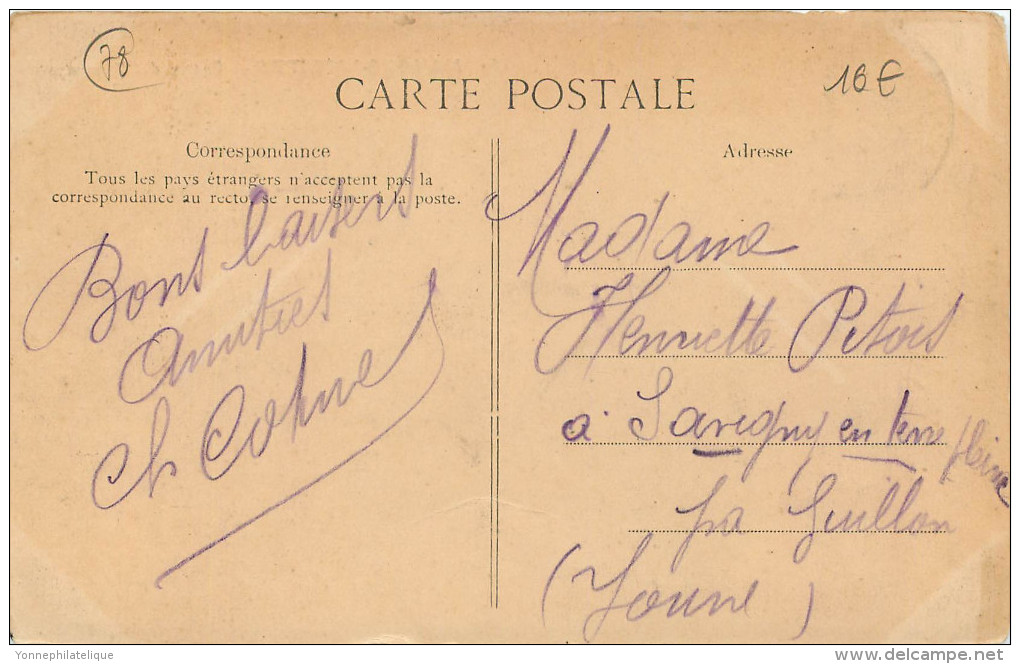 78
16€
CARTE POSTALE
Correspondance
Tous les pays étrangers n'acceptent pas la
correspondance au recto, se renseigner à la poste.
Bons baisers
Amitiés
Ch
Adresse
Madame
Henriette Petois
à Savigny en terre pleine
par Guillon
(Yonne)
Yonnephilatelique
delcampe.net